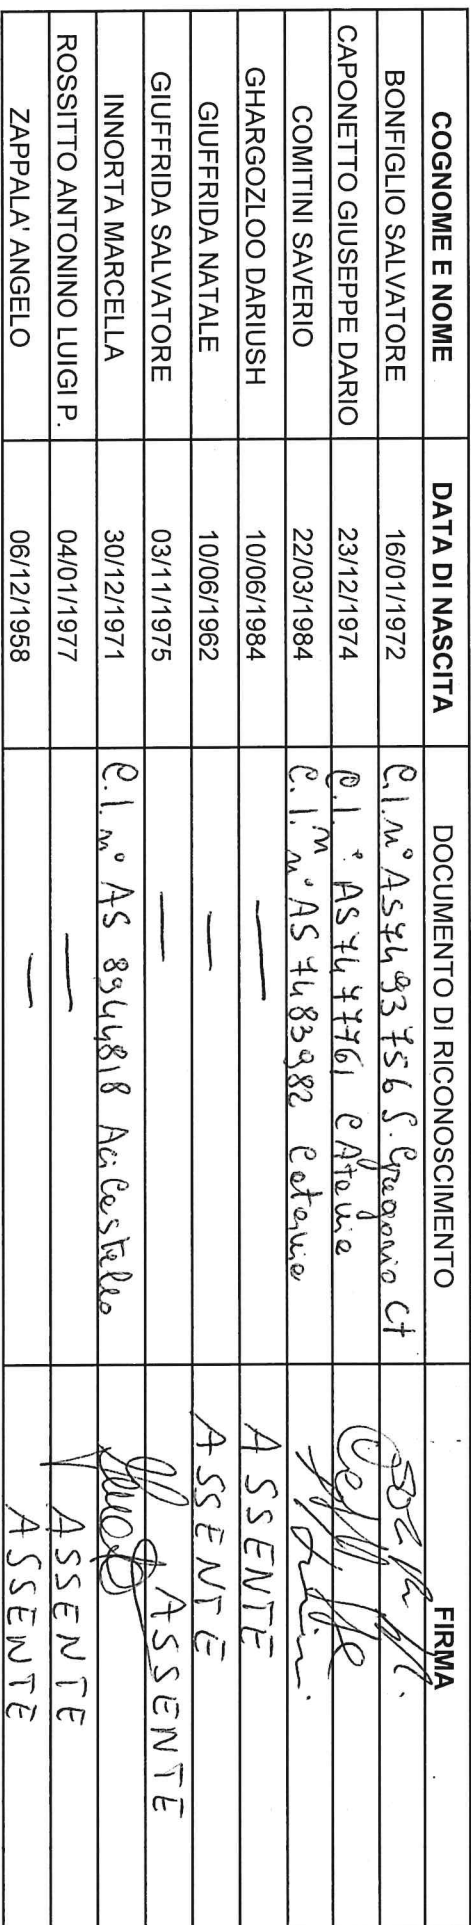 COGNOME E NOME DATA DI NASCITA DOCUMENTO DI RICONOSCIMENTO FIRMA
BONFIGLIO SALVATORE 16/01/1972 C.I. n° AS7493756 S. Gregorio CT
CAPONETTO GIUSEPPE DARIO 23/12/1974 C.I. n° AS7477761 CAtania
COMITINI SAVERIO 22/03/1984 C.I. n° AS7483982 Catania
GHARGOZLOO DARIUSH 10/06/1984 — ASSENTE
GIUFFRIDA NATALE 10/06/1962 — ASSENTE
GIUFFRIDA SALVATORE 03/11/1975 — ASSENTE
INNORTA MARCELLA 30/12/1971 C.I. n° AS 8944818 Aci Castello
ROSSITTO ANTONINO LUIGI P. 04/01/1977 — ASSENTE
ZAPPALA' ANGELO 06/12/1958 — ASSENTE